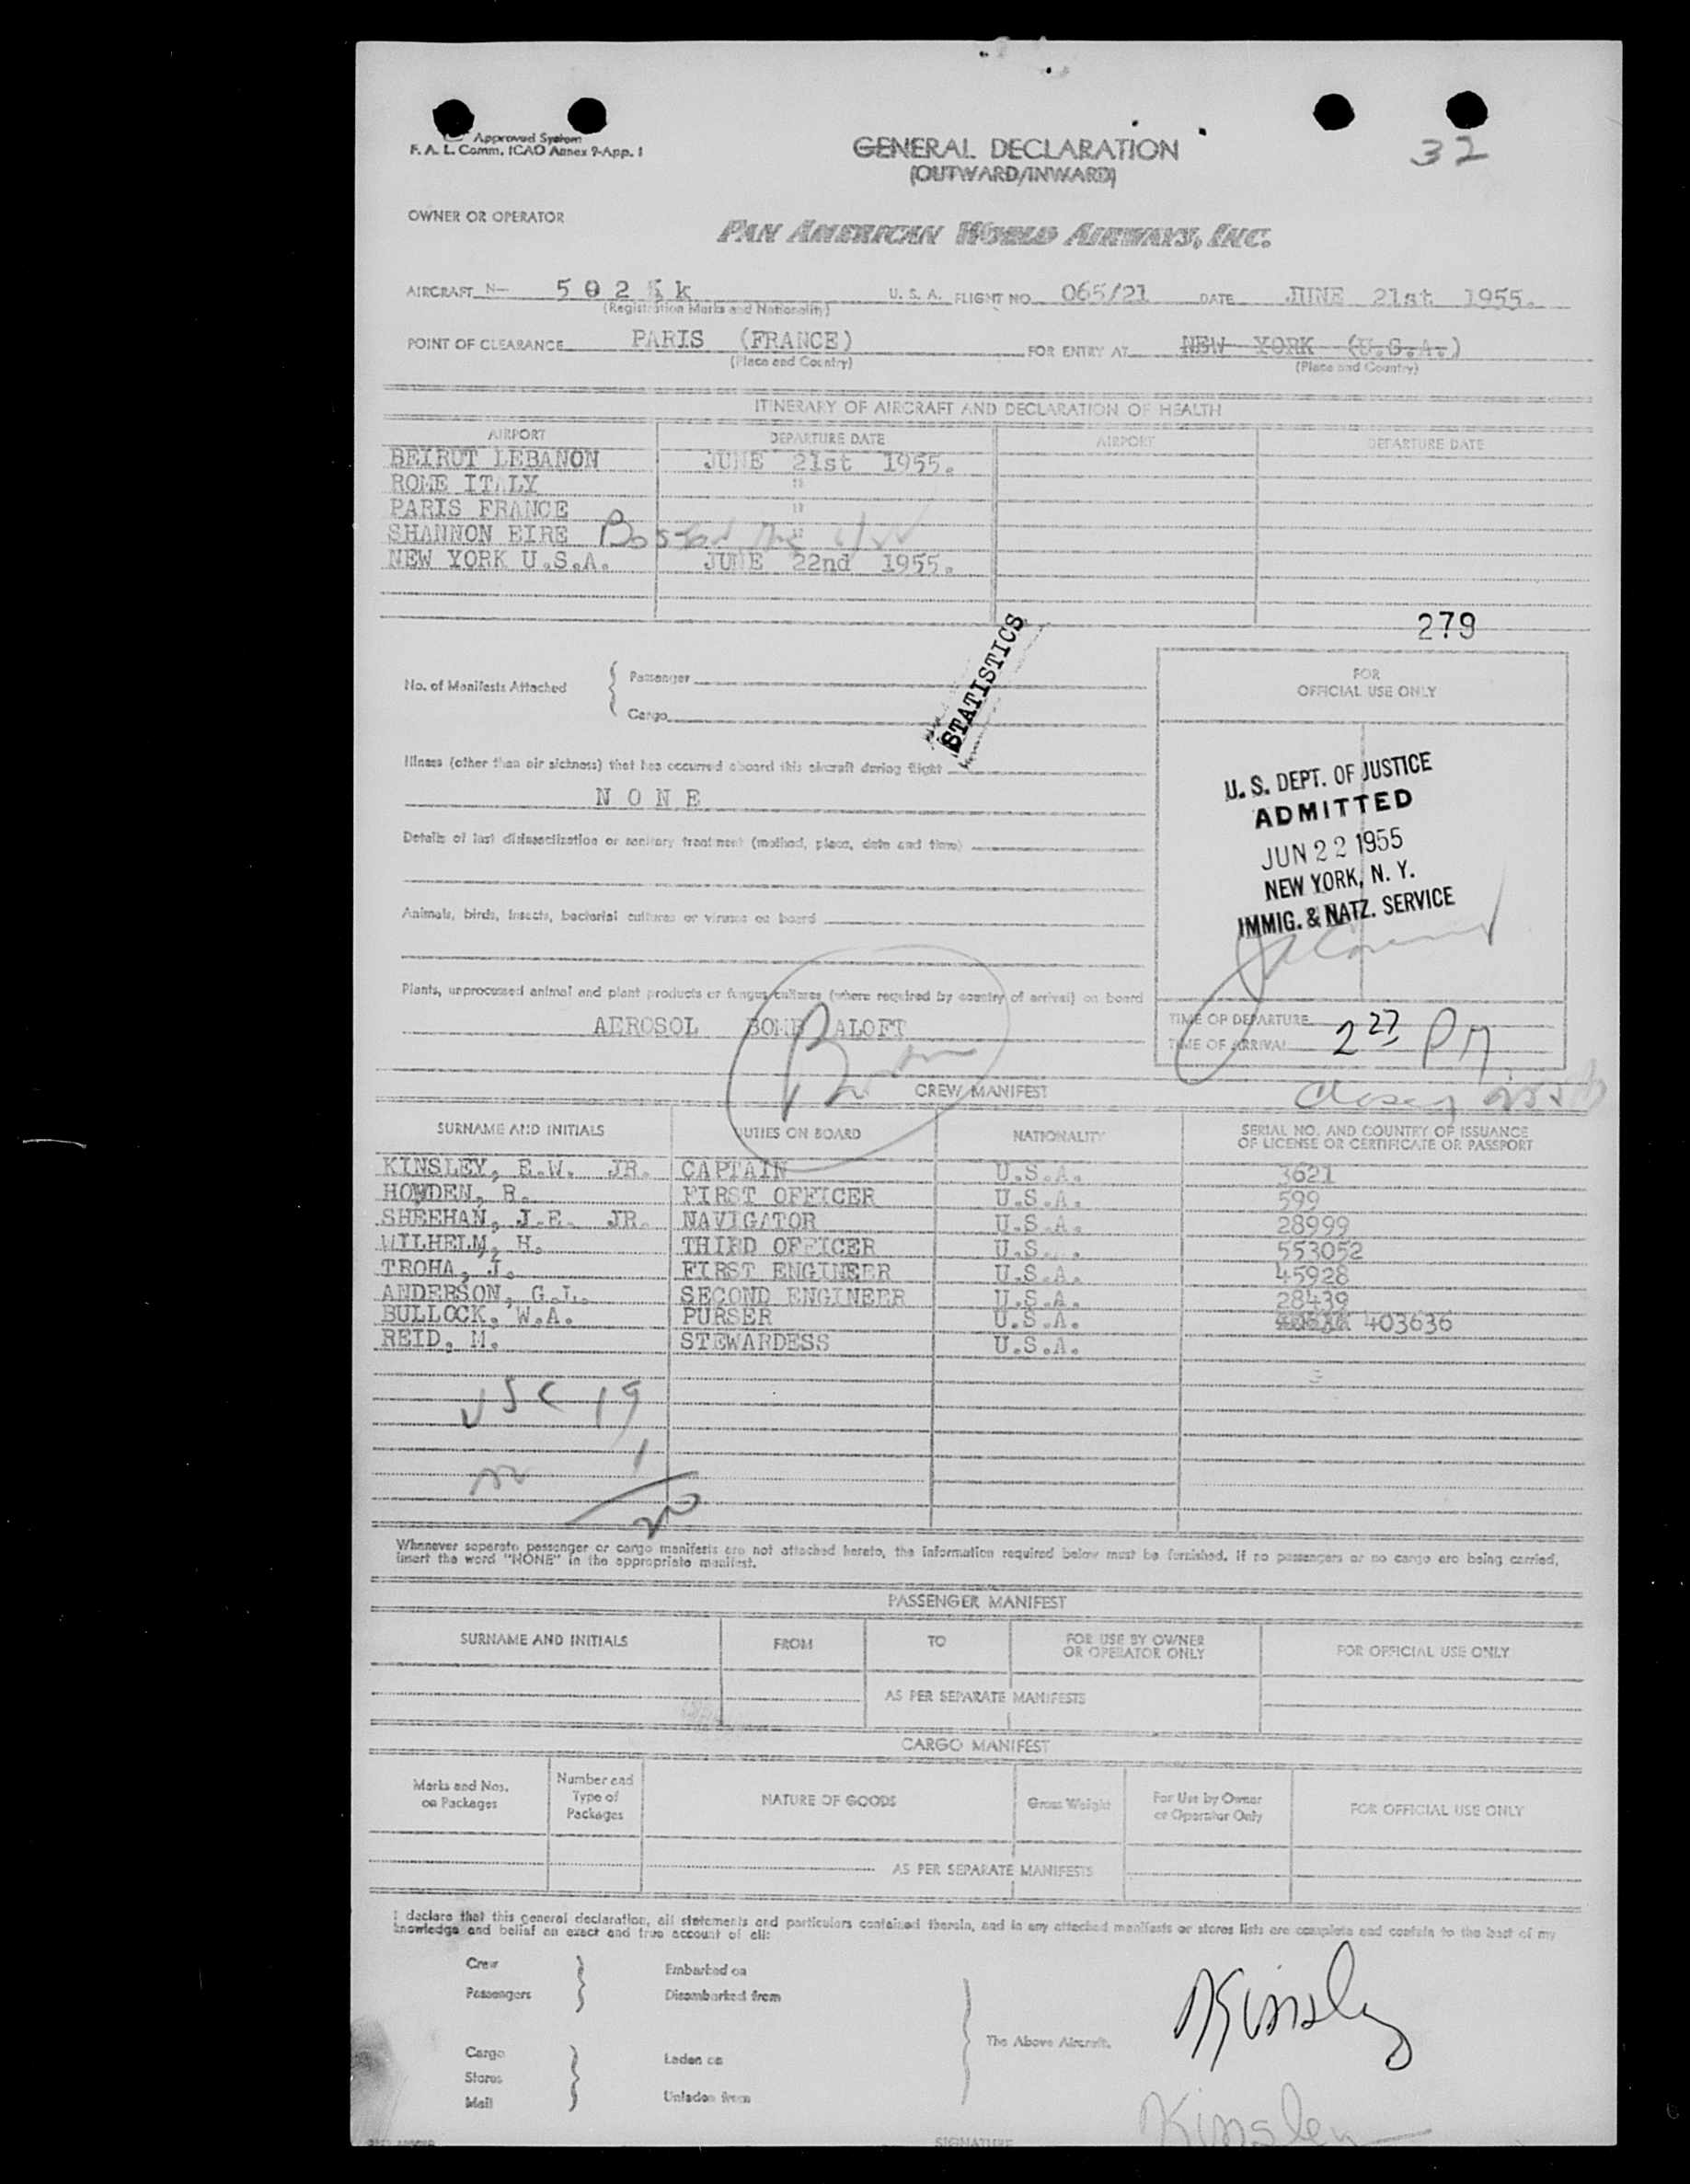 Approved System
F. A. L. Comm. ICAO Annex 9-App. 1
GENERAL DECLARATION
(OUTWARD/INWARD)
32
OWNER OR OPERATOR
PAN AMERICAN WORLD AIRWAYS, INC.
AIRCRAFT N- 502 k U. S. A. FLIGHT NO. 065/21 DATE JUNE 21st 1955.
(Registration Marks and Nationality)
POINT OF CLEARANCE PARIS (FRANCE) FOR ENTRY AT NEW YORK (U.S.A.)
(Place and Country) (Place and Country)
ITINERARY OF AIRCRAFT AND DECLARATION OF HEALTH
AIRPORT DEPARTURE DATE AIRPORT DEPARTURE DATE
BEIRUT LEBANON JUNE 21st 1955.
ROME ITALY "
PARIS FRANCE "
SHANNON EIRE Boston "
NEW YORK U.S.A. JUNE 22nd 1955.
279
STATISTICS
No. of Manifests Attached
Passenger
Cargo
FOR
OFFICIAL USE ONLY
Illness (other than air sickness) that has occurred aboard this aircraft during flight
NONE
Details of last disinsectization or sanitary treatment (method, place, date and time)
Animals, birds, insects, bacterial cultures or viruses on board
U. S. DEPT. OF JUSTICE
ADMITTED
JUN 22 1955
NEW YORK, N. Y.
IMMIG. & NATZ. SERVICE
Plants, unprocessed animal and plant products or fungus cultures (where required by country of arrival) on board
AEROSOL BOMB ALOFT
TIME OF DEPARTURE
TIME OF ARRIVAL 2 27 PM
CREW MANIFEST
SURNAME AND INITIALS DUTIES ON BOARD NATIONALITY SERIAL NO. AND COUNTRY OF ISSUANCE
OF LICENSE OR CERTIFICATE OR PASSPORT
KINSLEY, E.W. JR. CAPTAIN U.S.A. 3621
HOWDEN, R. FIRST OFFICER U.S.A. 599
SHEEHAN, J.E. JR. NAVIGATOR U.S.A. 28999
WILHELM, H. THIRD OFFICER U.S. . 553052
TROHA, J. FIRST ENGINEER U.S.A. 45928
ANDERSON, G.L. SECOND ENGINEER U.S.A. 28439
BULLOCK, W.A. PURSER U.S.A. 403636
REID, M. STEWARDESS U.S.A.
USC 19
1
20
Whenever separate passenger or cargo manifests are not attached hereto, the information required below must be furnished. If no passengers or no cargo are being carried,
insert the word "NONE" in the appropriate manifest.
PASSENGER MANIFEST
SURNAME AND INITIALS FROM TO FOR USE BY OWNER
OR OPERATOR ONLY FOR OFFICIAL USE ONLY
AS PER SEPARATE MANIFESTS
CARGO MANIFEST
Marks and Nos.
on Packages Number and
Type of
Packages NATURE OF GOODS Gross Weight For Use by Owner
or Operator Only FOR OFFICIAL USE ONLY
AS PER SEPARATE MANIFESTS
I declare that this general declaration, all statements and particulars contained therein, and in any attached manifests or stores lists are complete and contain to the best of my
knowledge and belief an exact and true account of all:
Crew Embarked on
Passengers Disembarked from
The Above Aircraft.
Kinsley
Cargo Laden on
Stores
Mail Unladen from
Kinsley
SIGNATURE